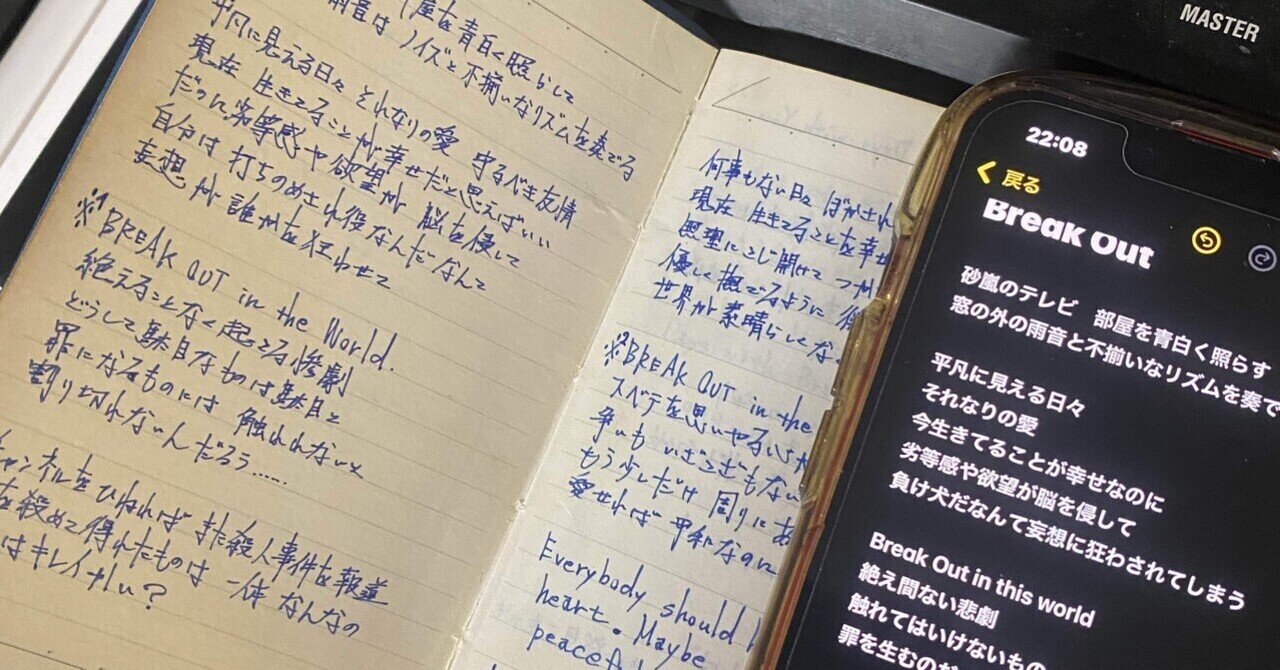 屋を青白く照らして
雨音は ノイズと不揃いなリズムを奏でる
平凡に見える日々 それなりの愛 守るべき友情
現在 生きてることが幸せだと思えばいい
だって劣等感や欲望が 脳を侵して
自分は 打ちのめされ役なんだなんて
妄想が 誰かを狂わせて
※¹BREAK OUT in the World.
絶えることなく起こる惨劇
どうして駄目なものは駄目と
罪になるものには 触れれないと
割り切れないんだろう……
チャンネルをひねれば また殺人事件を報道
を殺めて得れたものは 一体 なんなの
はキレイかい?
何事もない日々 ぼかされ
現在 生きてることを幸せ
無理にこじ開けて つか
優しく撫でるように
世界が素晴らしくな
※²BREAK OUT in the
スベテを思いやる
争いも いざこざもない
もう少しだけ 周りにあ
愛せれば 平和なのに
Everybody should
heart. Maybe
peaceful
MASTER
22:08
戻る
Break Out
砂嵐のテレビ 部屋を青白く照らす
窓の外の雨音と不揃いなリズムを奏で
平凡に見える日々
それなりの愛
今生きてることが幸せなのに
劣等感や欲望が脳を侵して
負け犬だなんて妄想に狂わされてしまう
Break Out in this world
絶え間ない悲劇
触れてはいけないもの
罪を生むのだ